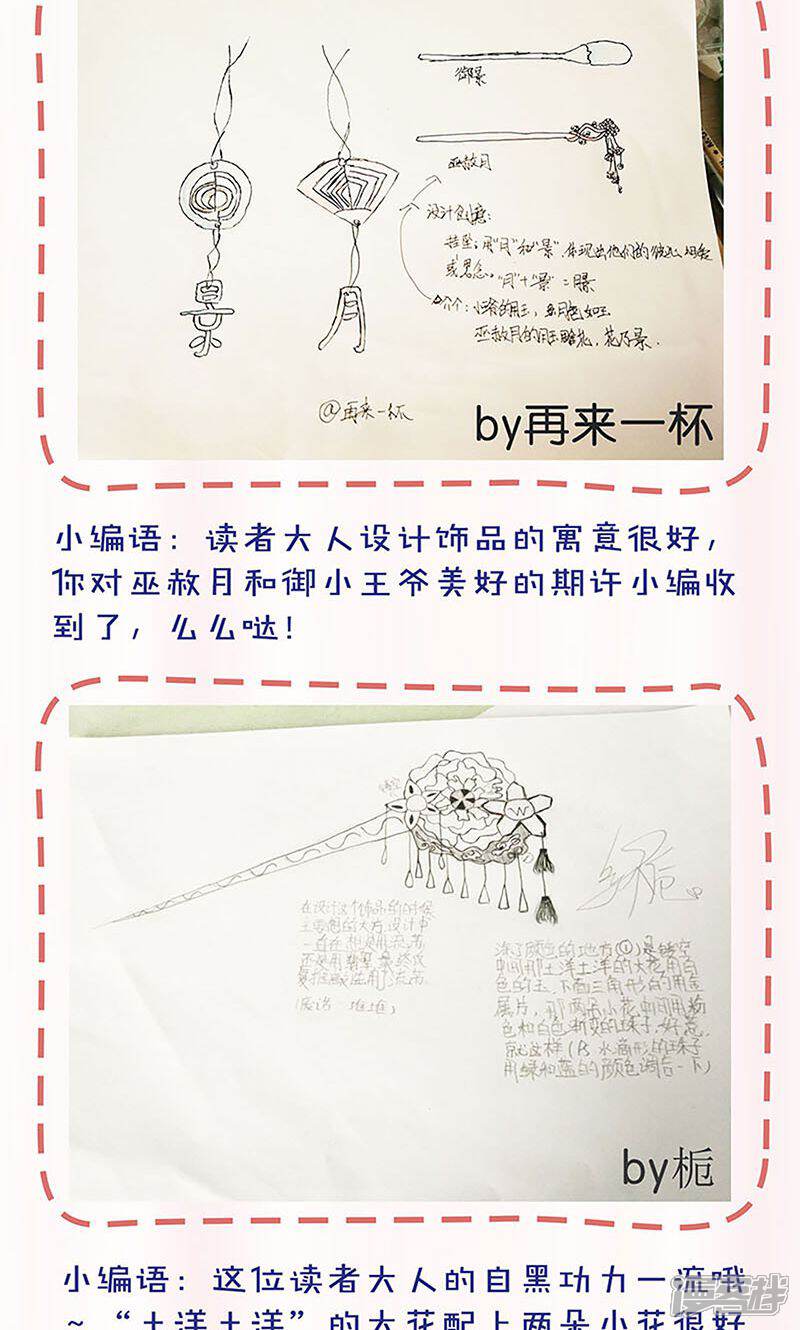 御景
巫赦月
设计创意:
挂坠:用"月"和"景"体现出他们的彼此相爱
或思念。"月"+"景"=
景
月
巫赦月的用玉略花,花乃景.
@再来一杯
by再来一杯
小编语:读者大人设计饰品的寓意很好,
你对巫赦月和御小王爷美好的期许小编收
到了,么么哒!
镂空
W
在设计这个饰品的时候
一直在想是用流苏
还是用翡翠 最终
涂了颜色的地方①是镂空
中间那土洋土洋的大花用白
色的玉、下面三角形的用金
属片,那两朵小花中间用粉
色和白色渐变的珠子,好惹,
就这样(Ps 水滴形的珠子
用绿和蓝的颜色调合一下)
by栀
小编语:这位读者大人的自黑功力一流哦
~"土洋土洋"的大花配上两朵小花很好
漫客栈